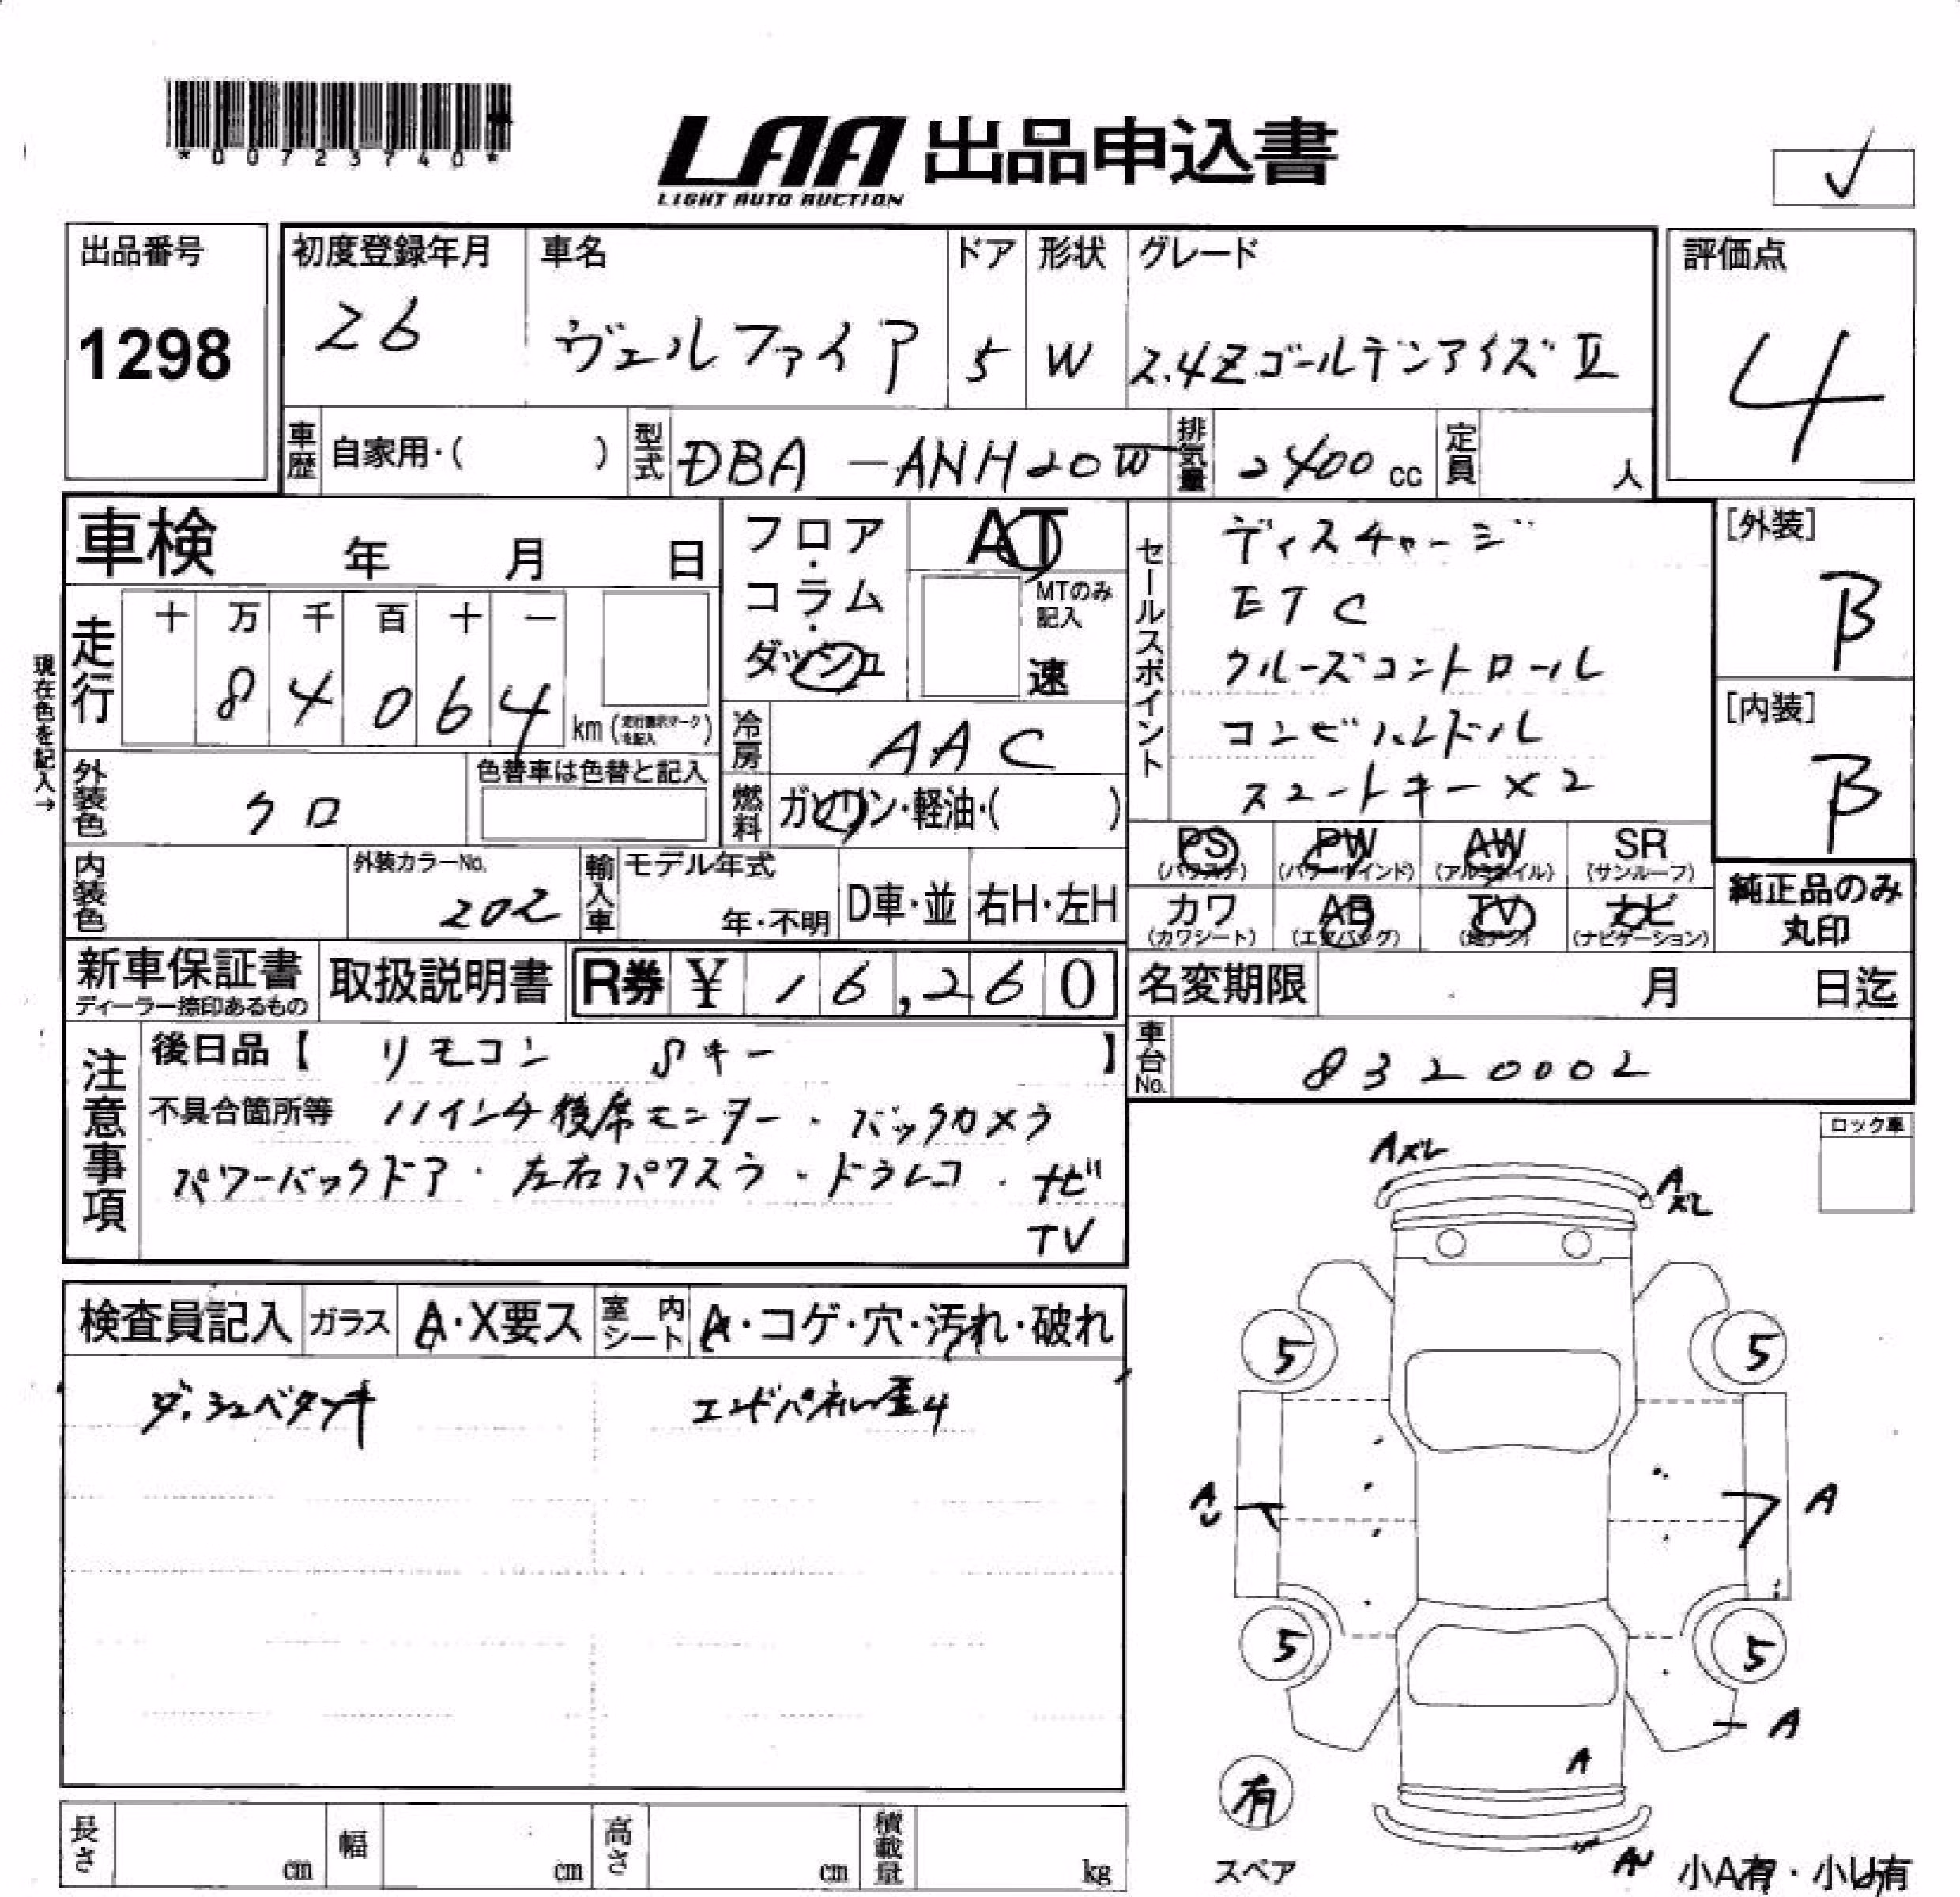 *00723740*
LAA 出品申込書
LIGHT AUTO AUCTION
✓
出品番号
1298
初度登録年月
26
車名
ヴェルファイア
ドア
5
形状
W
グレード
2.4Zゴールデンアイズ Ⅱ
評価点
4
車歴 自家用・( )
型式 DBA-ANH20W
排気量 2400 cc
定員 人
車検 年 月 日
フロア・コラム・ダッシュ
AT
MTのみ記入
速
セールスポイント
ディスチャージ
ETC
クルーズコントロール
コンビハンドル
スマートキー×2
[外装]
B
[内装]
B
現在色を記入→
走行
十 万 千 百 十 一
8 4 0 6 4
km(走行表示マークを記入)
冷房 AAC
燃料 ガソリン・軽油・( )
外装色 クロ
色替車は色替と記入
内装色
外装カラーNo.
202
輸入車
モデル年式
年・不明
D車・並
右H・左H
PS (パワステ)
PW (パワーウインド)
AW (アルミホイル)
SR (サンルーフ)
カワ (カワシート)
AB (エアバッグ)
TV (地デジ)
ナビ (ナビゲーション)
純正品のみ丸印
新車保証書
ディーラー捺印あるもの
取扱説明書
R券 ¥ 16,260
名変期限 月 日迄
車台No. 8320002
注意事項
後日品【 リモコン Sキー 】
不具合箇所等 11インチ後席モニター・バックカメラ
パワーバックドア・左右パワスラ・ドラレコ・ナビ
TV
ロック車
検査員記入
ガラス A・X要ス
室内シート A・コゲ・穴・汚れ・破れ
エンドパネル歪4
A
A
5
5
A
A
5
5
A
A
有
スペア
AU
小A有・小U有
長さ cm
幅 cm
高さ cm
積載量 kg